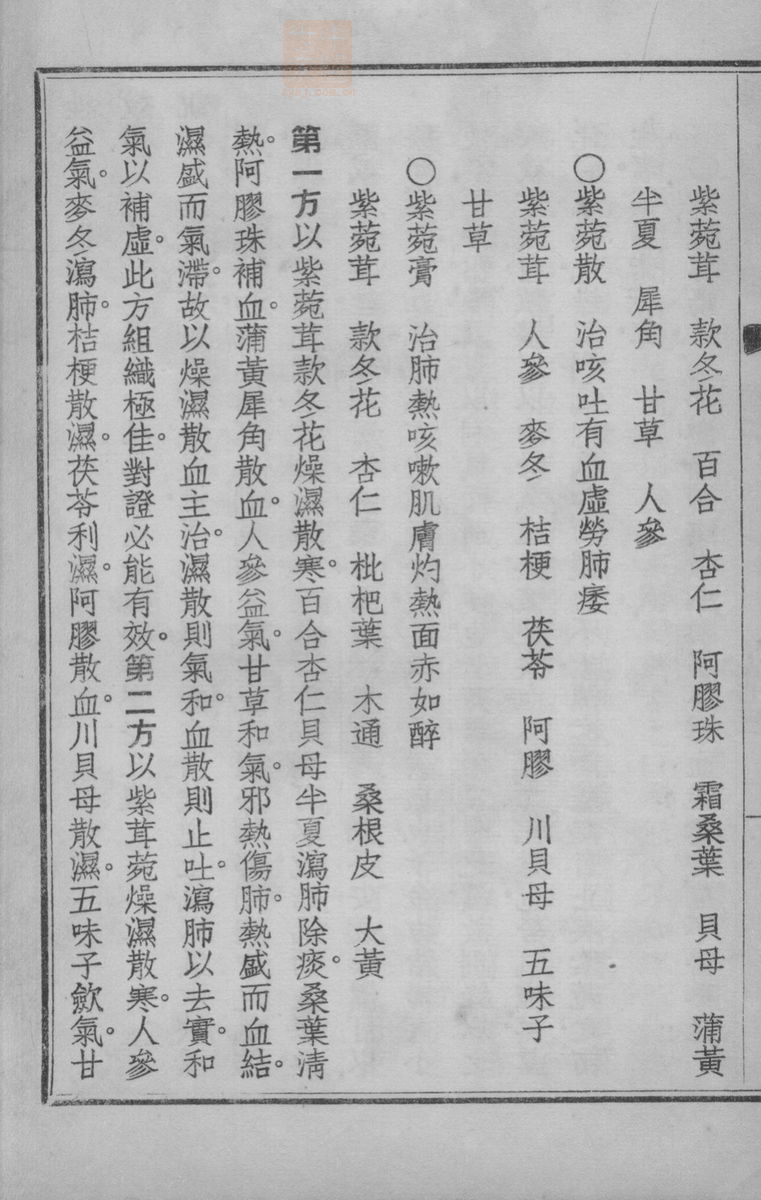 紫菀茸　款冬花　百合　杏仁　阿膠珠　霜桑葉　貝母　蒲黃
半夏　犀角　甘草　人參
〇紫菀散　治咳吐有血虛勞肺痿
紫菀茸　人參　麥冬　桔梗　茯苓　阿膠　川貝母　五味子
甘草
〇紫菀膏　治肺熱咳嗽肌膚灼熱面赤如醉
紫菀茸　款冬花　杏仁　枇杷葉　木通　桑根皮　大黃
第一方以紫菀茸款冬花燥濕散寒。百合杏仁貝母半夏瀉肺除痰。桑葉淸
熱。阿膠珠補血。蒲黃犀角散血。人參益氣。甘草和氣。邪熱傷肺。熱盛而血結。
濕盛而氣滯。故以燥濕散血主治。濕散則氣和。血散則止吐。瀉肺以去實。和
氣以補虛。此方組織極佳。對證必能有效。第二方以紫茸菀燥濕散寒。人參
益氣。麥冬瀉肺。桔梗散濕。茯苓利濕。阿膠散血。川貝母散濕。五味子斂氣。甘